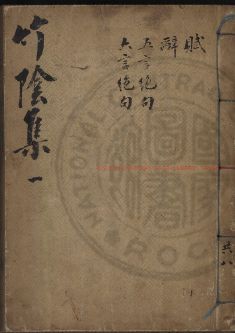 賦
辭
五言絶句
六言絶句
竹陰集 一
共八
NATIONAL CENTRAL
R.O.C.